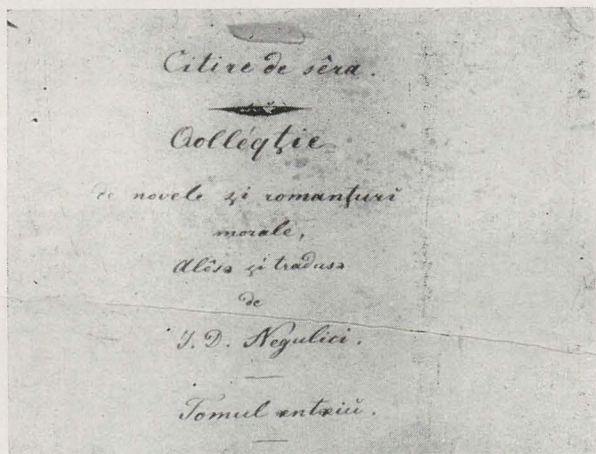 Citire de sêra.
Qolléqţie
de novele şi romanţurĭ
morale,
Alêsъ şi tradusъ
de
I. D. Negulici.
Tomul ѫntѫiŭ.